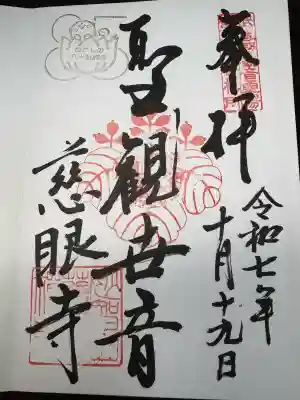 奉拝
令和七年
十月十九日
聖観世音
慈眼寺